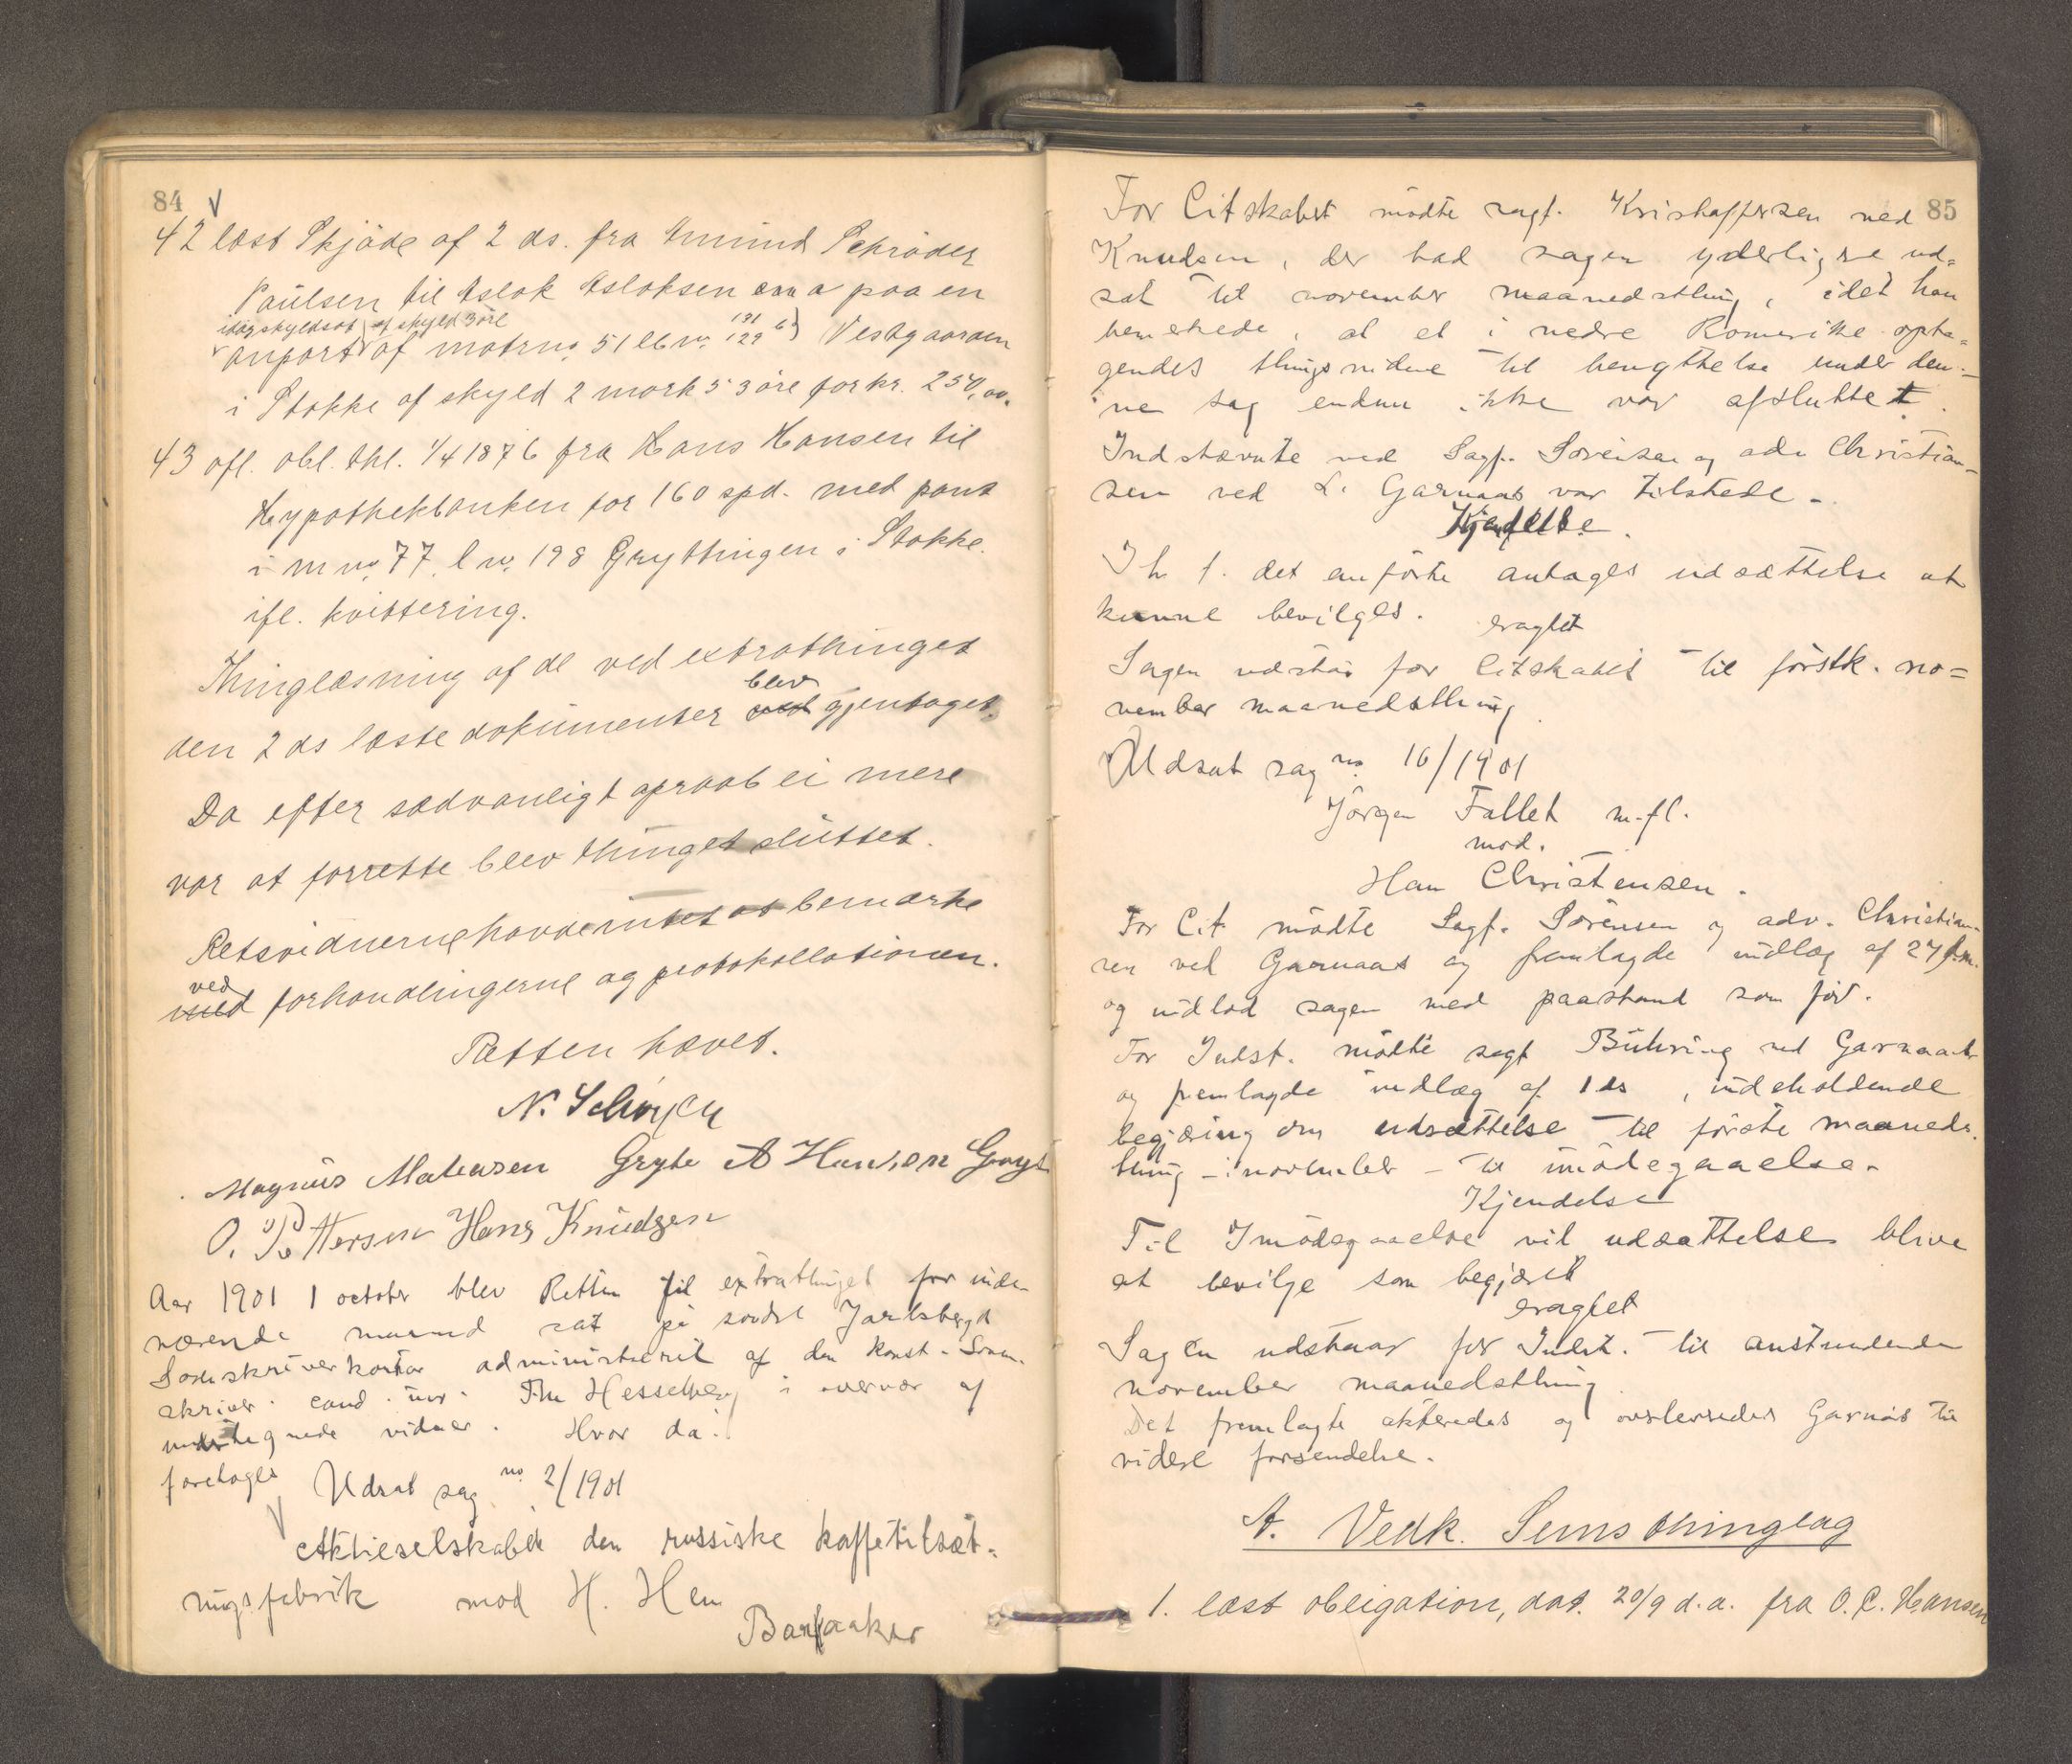 84
42 læst Skjøde af 2 ds. fra Amund Schrøder
Paulsen til Aslak Aslaksen paa en
idag skyldsat af skyld 3 öre
anpart af matrno. 51 lbno. 129 Vestgaarden
i Stokke af skyld 2 mark 53 öre for kr. 250,00.
43 afl. obl. thl. 1/4 1876 fra Hans Hansen til
Hypothekbanken for 160 spd. med pant
i m no. 77 l no. 198 Grythingen i Stokke
ifl. kvittering.
Thinglæsning af de ved extrathinget
den 2 ds læste dokumenter blev gjentaget.
Da efter sædvanligt opraab ei mere
var at forrette blev thinget sluttet.
Retsvidnerne havde intet at bemærke
ved forhandlingerne og protokollationen.
Retten hævet.
N. Schøyen
Magnus Mathesen Gryte A Hansen
O. Pettersen Hans Knudsen
Aar 1901 1 october blev Retten til extrathinget for inde-
værende maaned sat på søndre Jarlsbergs
Sorenskriverkontor administreret af den konst. Soren-
skriver cand. jur. Hesselberg i overvær af
undertegnede vidner. Hvor da:
foretoges Udsat sag no. 2/1901
Aktieselskabet den russiske kaffetilsæt-
ningsfabrik mod H. Hem
Barkaaker
85
For Citskabet mødte sagf. Kristoffersen ved
Knudsen, der bad sagen yderligere ud=
sat til november maanedsthing, idet han
bemerkede, at et i nedre Romerike opta=
gendes thingsvidne til benyttelse under den-
ne sag endnu ikke var afsluttet.
Indstævnte ved Sagf. Sørensen og adv. Christian-
sen ved L. Garnaas var tilstede.
Kjendelse.
I h. t. det anførte antages udsættelse at
kunne bevilges.
eragtet
Sagen udstaar for Citskabet til førstk. no=
vember maanedsthing
Udsat sag no. 16/1901
Jørgen Fallet m.fl.
mod.
Han Christensen.
For Cit mødte Sagf. Sørensen og adv. Christian-
sen ved Garnaas og fremlagde indlæg af 27 f.m.
og indlod sagen med paastand som før.
For Indst. mødte sagf Bühring ved Garnaas
og fremlagde indlæg af 1 ds, indeholdende
begjæring om udsættelse til første maaneds-
thing - i november - til imødegaaelse.
Kjendelse
Til Imødegaaelse vil udsættelse blive
at bevilge som begjæret
eragtet
Sagen udstaar for Indst. til anstundende
november maanedsthing
Det fremlagte akteredes og overleveredes Garnås til
videre forsendelse.
A. Vedk. Sems thinglag
1. læst obligation, dat. 20/9 d.a. fra O. C. Hansen